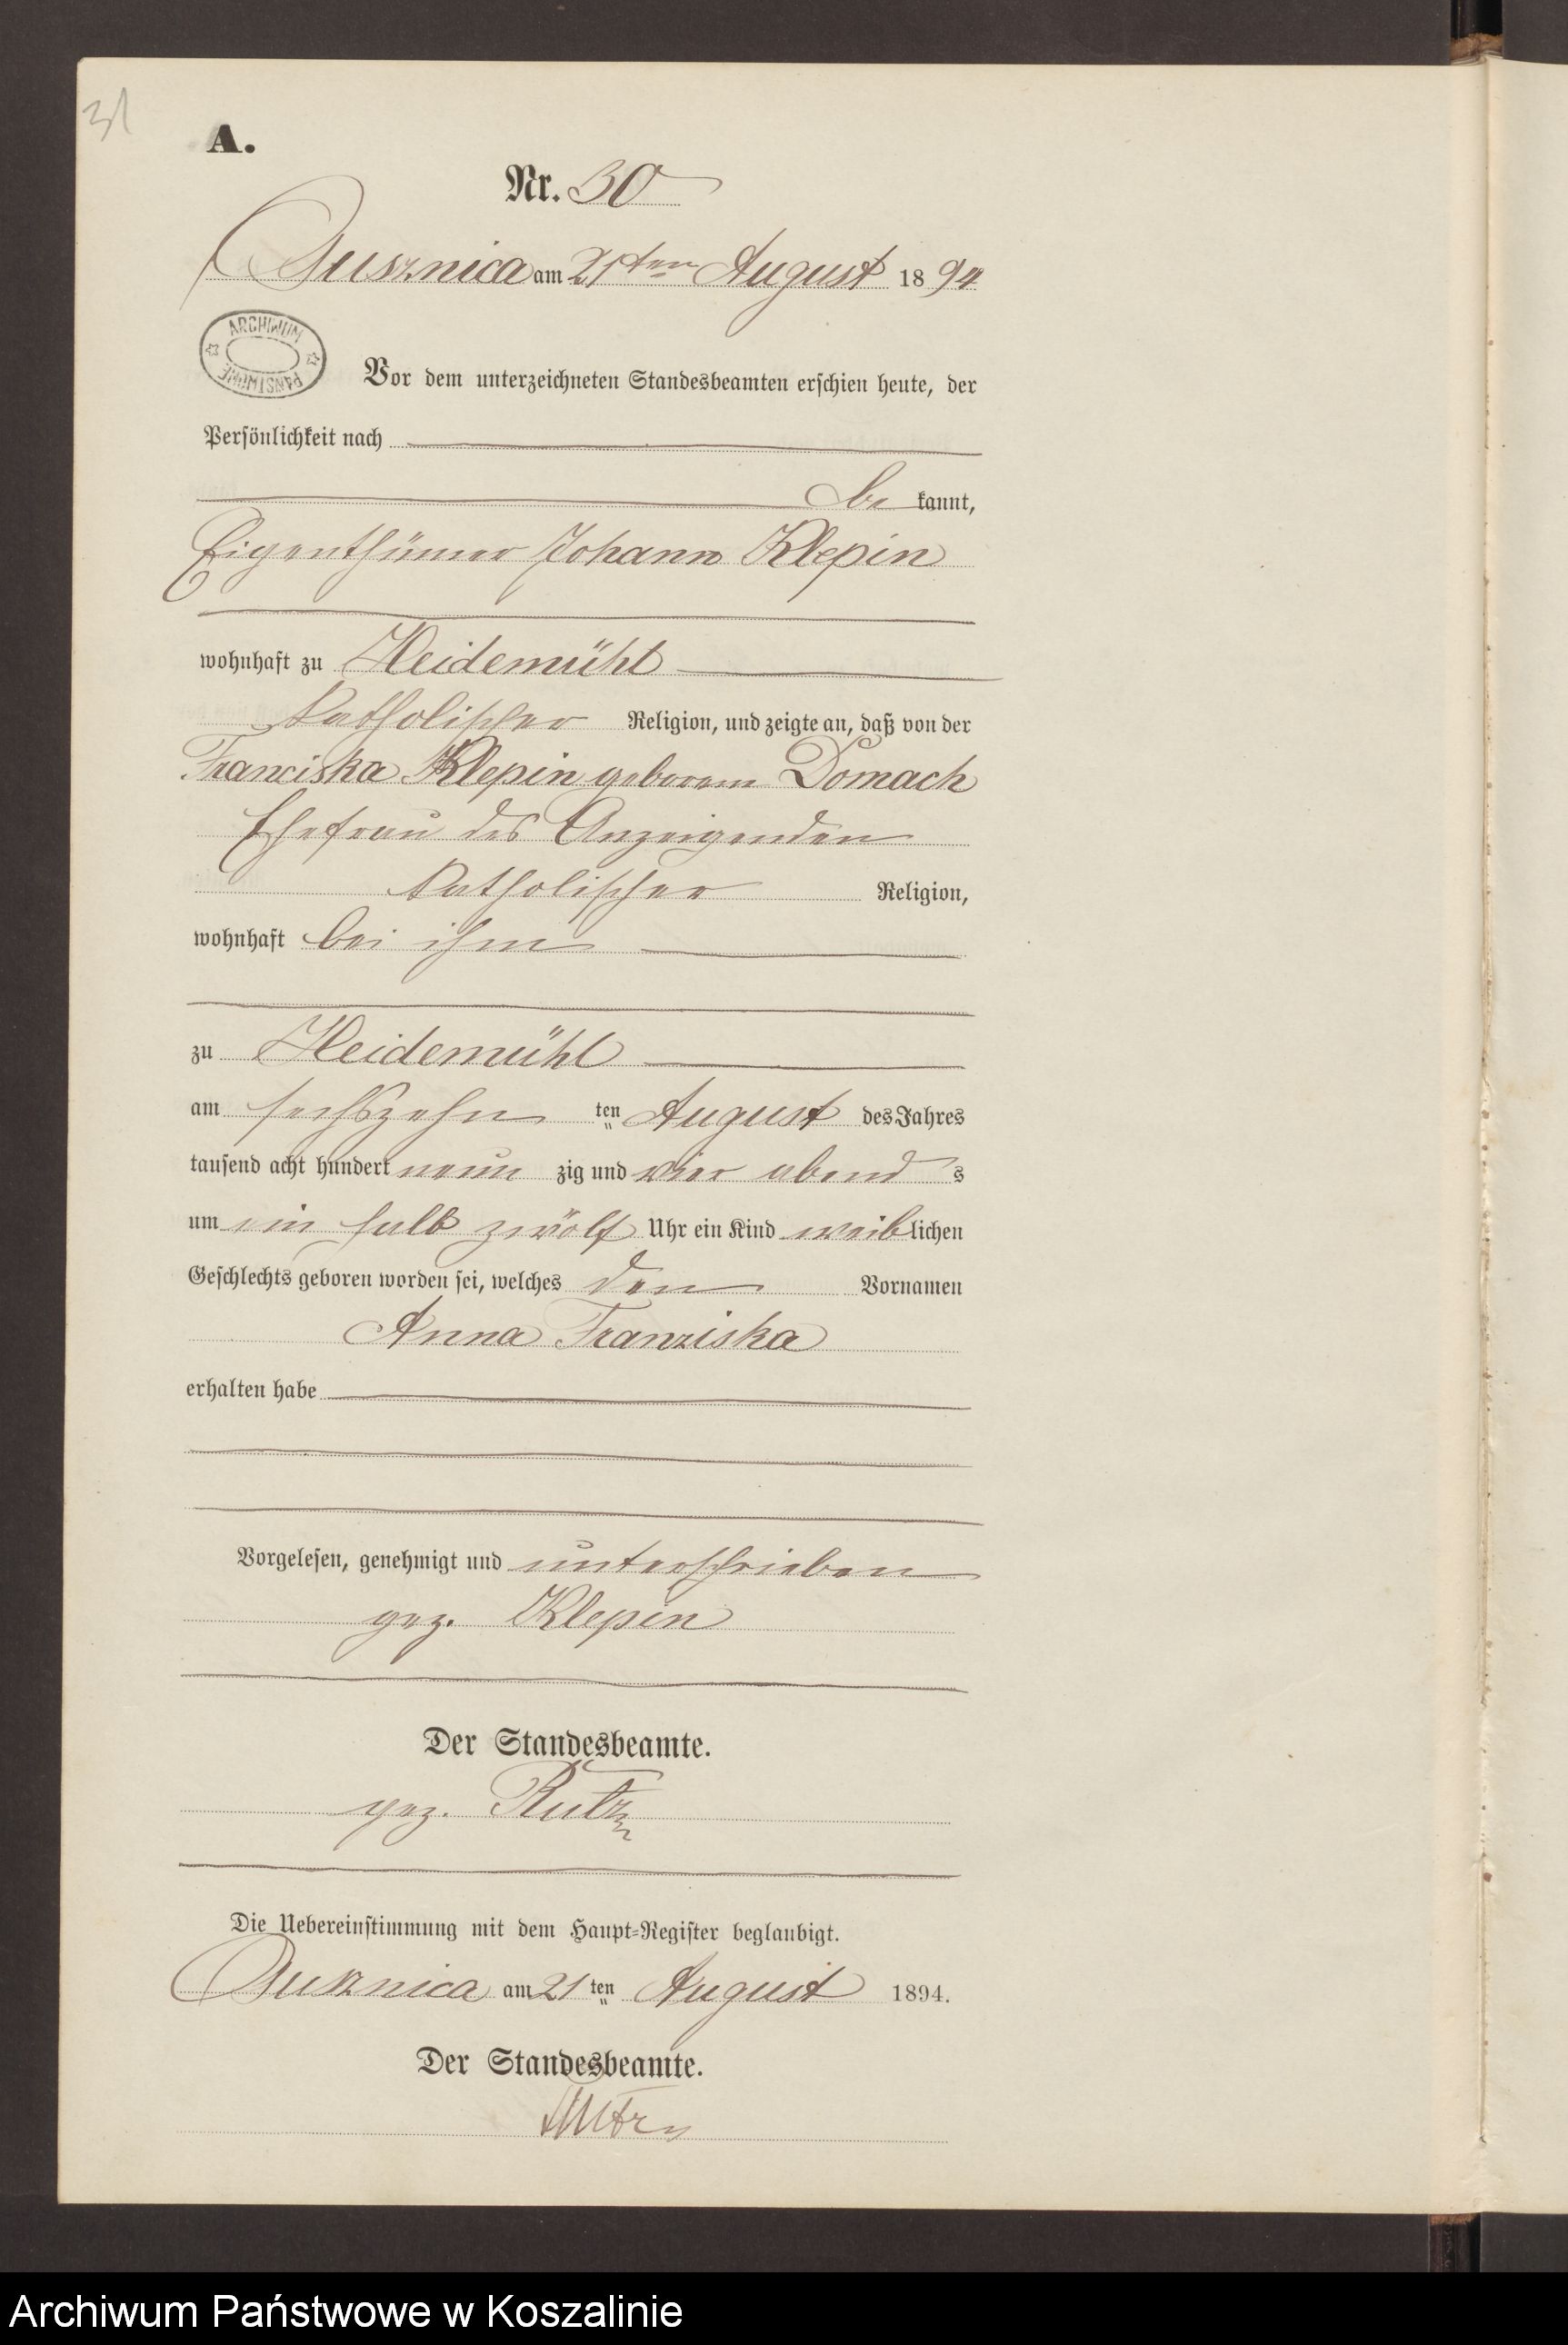 31
A.
Nr. 30
Ossusznica am 21ten August 1894
ARCHIWUM
PAŃSTWOWE
Vor dem unterzeichneten Standesbeamten erschien heute, der
Persönlichkeit nach
be kannt,
Eigenthümer Johann Klepin
wohnhaft zu Heidemühl
katholischer Religion, und zeigte an, daß von der
Franciska Klepin geborenen Domach
Ehefrau des Anzeigenden
katholischer Religion,
wohnhaft bei ihm
zu Heidemühl
am sechszehn ten August des Jahres
tausend acht hundert neun zig und vier abend s
um ein halb zwölf Uhr ein Kind weiblichen
Geschlechts geboren worden sei, welches den Vornamen
Anna Franziska
erhalten habe
Vorgelesen, genehmigt und unterschrieben
gez. Klepin
Der Standesbeamte.
gez. Rutz
Die Uebereinstimmung mit dem Haupt-Register beglaubigt.
am 21 ten August 1894.
Der Standesbeamte.
Archiwum Państwowe w Koszalinie